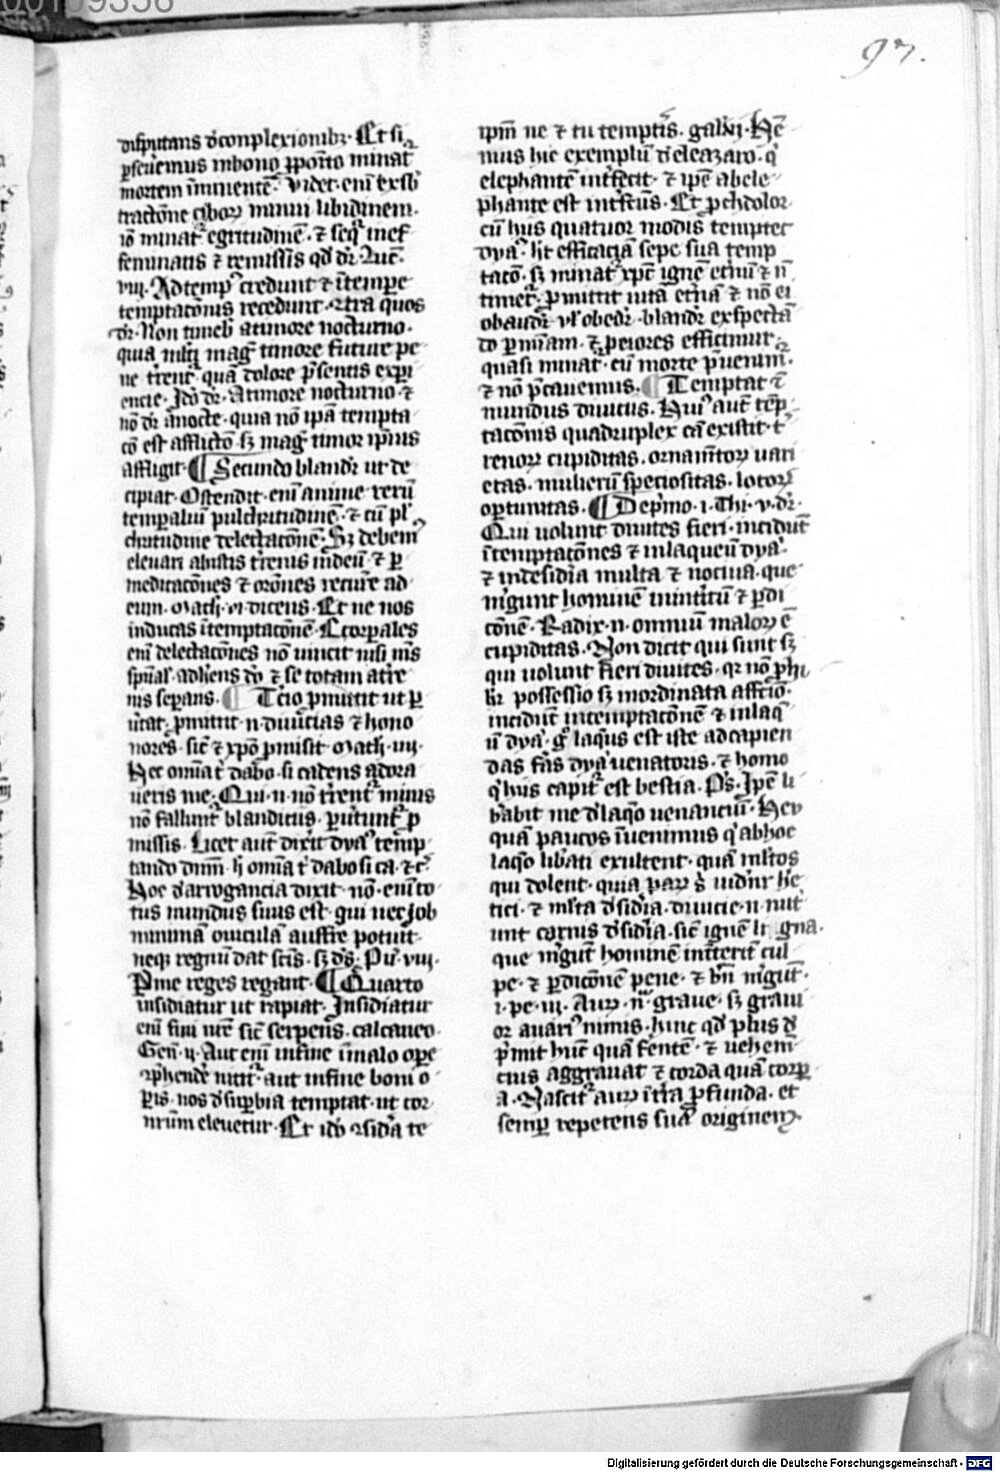 97.
disputans d' conplexionibꝫ. Et si
p̱seuerem̃us in bono p̱poito minat᷑
mortem īminentē. Videt. enī ex sb̓
tractōne ciboꝝ minui libidinem.
iō minat᷑ egritudinē. ⁊ seq᷑ in ef
feminatis ⁊ remissis qd̓ dr̓. Auc̄.
viij. Ad temp᷒ credunt ⁊ ī tempe
temptatōnis recedunt. ꝯtra quos
dr̓. Non timeb̓ a timore nocturno.
quia inliq̓ mag̓ timore future pe
ne t̓rent᷑ quā dolore p̄sentis expi
encie. Ido dr̓. A timore nocturno ⁊
nō dr̓ ī nocte. quia nō ipā tempta
cō est afflictō sꝫ mag̓ timor ip̄ius
affligit. ¶ Secundo bland᷑ ut de
cipiat. Ostendit. enī anime rerū
temp̱alium pulchritudinē. ⁊ cū pl᷒
chritudine delectacōnē. Sꝫ debem᷒
eleuari ab istis t̓renis in deū ⁊ p̱
meditacōnes ⁊ orōnes recur̓e ad
eum. Math. vi dicens. Et ne nos
inducas ī temptacōnē. Et corp̱ales
enī delectacōnes nō vincit nisi mēs
sp̄ual᷑ adh̓ens dō ⁊ se totam a t̓re
nis sep̱ans. ¶ Tcio p̱mittit ut p̱
u̓tat. p̱mittit .n. diuicias ⁊ hono
nores. sic̄ ⁊ xp̄o p̱misit. Math. iiij.
Hec omīa t̓ dabo. si cadens adora
ueris me. Qui .n. nō t̓rent᷑ minis
nō fallunt᷑ blandiciis. p̱u̓tunt᷑ p̱
missis. Licet aut̄ dixit dya᷒ temp
tando dnm̄. h̓ omīa t̓ dabo si ca. ⁊c̄.
Hoc d' arrogancia dixit. nō. enī to
tus mundus suus est. qui nec job
minimā ouiculā auffer̓e potuit.
neqꝫ regnū dat sc̄is. sꝫ ds̄. Pu̓. viij.
P̱ me reges regant. ¶ Quarto
insidiatur ut rapiat. Insidiatur
enī fini n̄re sic̄ serpens. calcaneo.
Gen̄. ij. Aut enī in fine ī malo ope
ꝯp̱hender̓e nitit᷑. aut in fine boni o
p̱is. nos d' sup̱bia temptat. ut cor
nr̄um eleuetur. Et ido ꝯsid̓a te
ipm̄ ne ⁊ tu tempt̓is. gal. vj. He
mus hic exemplū d' eleazaro. q̓
elephantē int̓fecit. ⁊ ipē ab ele
phante est int̓fc̄us. Et p̱ch dolor.
cū hiis quatuor modis temptet
dya᷒. h̓t efficaciā sepe sua temp
tacō. sꝫ minat᷑ xpc̄ ignē et̓nū ⁊ n̄
timet᷑. p̱mittit uitā et̓nā ⁊ nō ei
obaud᷑. vl̓ obed᷑. bland᷑ exspectā
do p̱ niām. ⁊ peiores efficimur.
quasi minat᷑ cū morte p̄ueniri.
⁊ nō p̄cauemus. ¶ Temptat ī
mundus diuicus. Hui᷒ aut̄ tēp
tacōnis quadruplex cā existit. t̓
renoꝝ cupiditas. ornamētoꝝ uari
etas. mulierū speciositas. locoꝝ
oportunitas. ¶ De p̱imo .i. Thi. v. dr̓.
Qui uolunt diuites fieri. incidūt
ī temptacōnes ⁊ in laqueū dya᷒.
⁊ in desid̓ia multa ⁊ nociua. que
m̓gunt hominē in int̓itū ⁊ p̱di
cōnē. Radix .n. omniū maloꝝ ē
cupiditas. Non dicit qui sunt sꝫ
qui uolunt fieri diuites. qr̓ nō p̱hi
b̓r possessio sꝫ inordinata affcīo.
incidūt in temptacōnē ⁊ in laq̓
ū dya᷒. g̓ laq̓us est iste ad capien
das fās dya᷒ uenatoris. ⁊ homo
q̓ hiis capit᷑ est bestia. Ps̄. Ipē li
b̓abit me d' laq̓o uenanciū. Heu
quā paucos īuenimus q̓ ab hoc
laq̓o lib̓ati exultent. quā ml̓tos
qui dolent. quia paꝝ s̓ uidn̄r he
tici. ⁊ ml̓ta d̓sid̓ia. diuicie .n. nut̓
iunt carnis d̓sid̓ia. sic̄ ignē ligna.
que m̓gūt hominē in int̓itū cul
pe. ⁊ p̱dicōnē pene. ⁊ bn̄ m̓gūt.
.i. pe. iij. Auꝝ .n̄. graue. sꝫ graui
or auari᷒ nimis. hinc qd̓ plus d'
p̓mit hūc quā fer̓entē. ⁊ uehem̄
cius aggrauat ⁊ corda quā corp̱
a. Nascit᷑ auꝝ ī t̓ra p̱funda. et
semp̱ repetens suā originem.
Digitalisierung gefördert durch die Deutsche Forschungsgemeinschaft - DFG